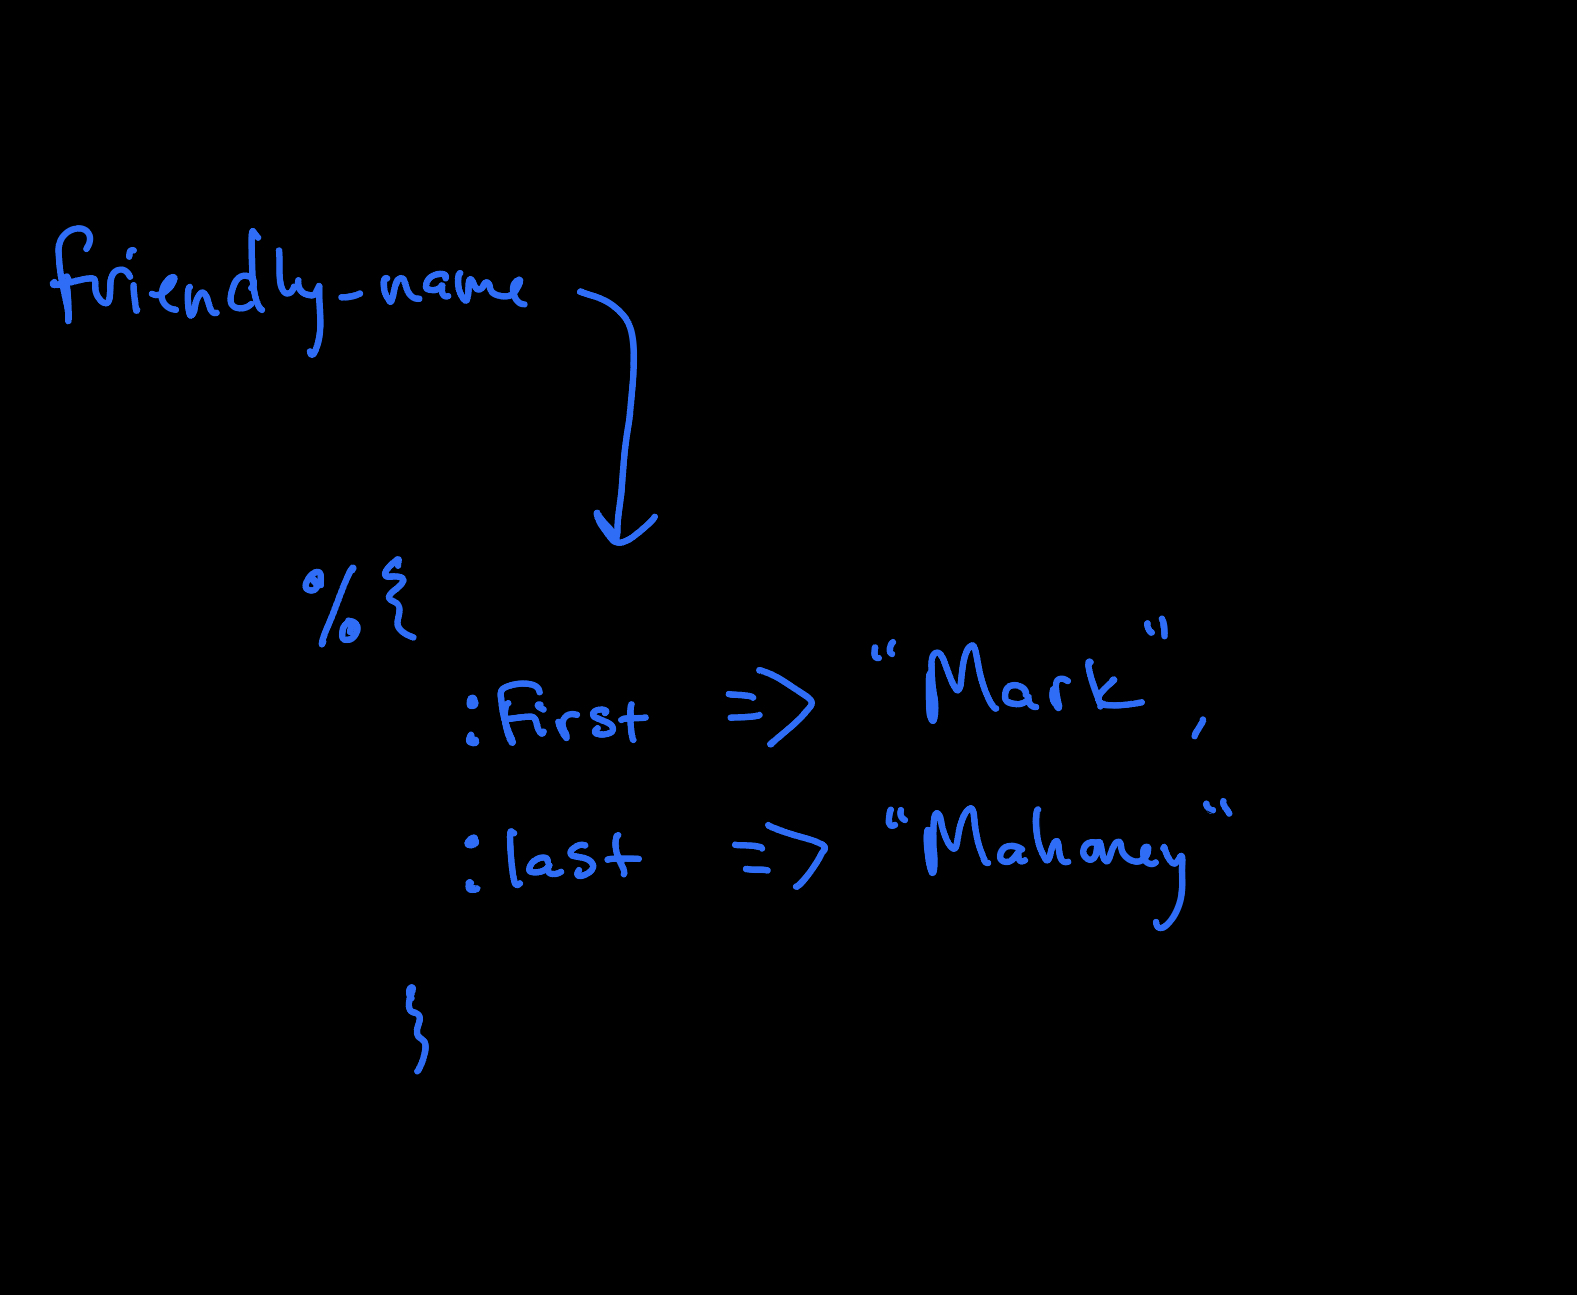 friendly_name
%{
:first => "Mark",
:last => "Mahoney"
}